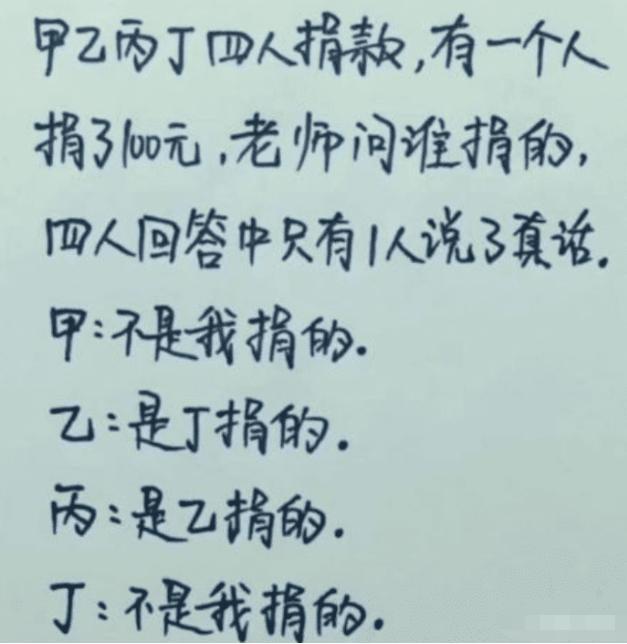 甲乙丙丁四人捐款,有一个人
捐了100元,老师问谁捐的,
四人回答中只有1人说了真话.
甲:不是我捐的.
乙:是丁捐的.
丙:是乙捐的.
丁:不是我捐的.